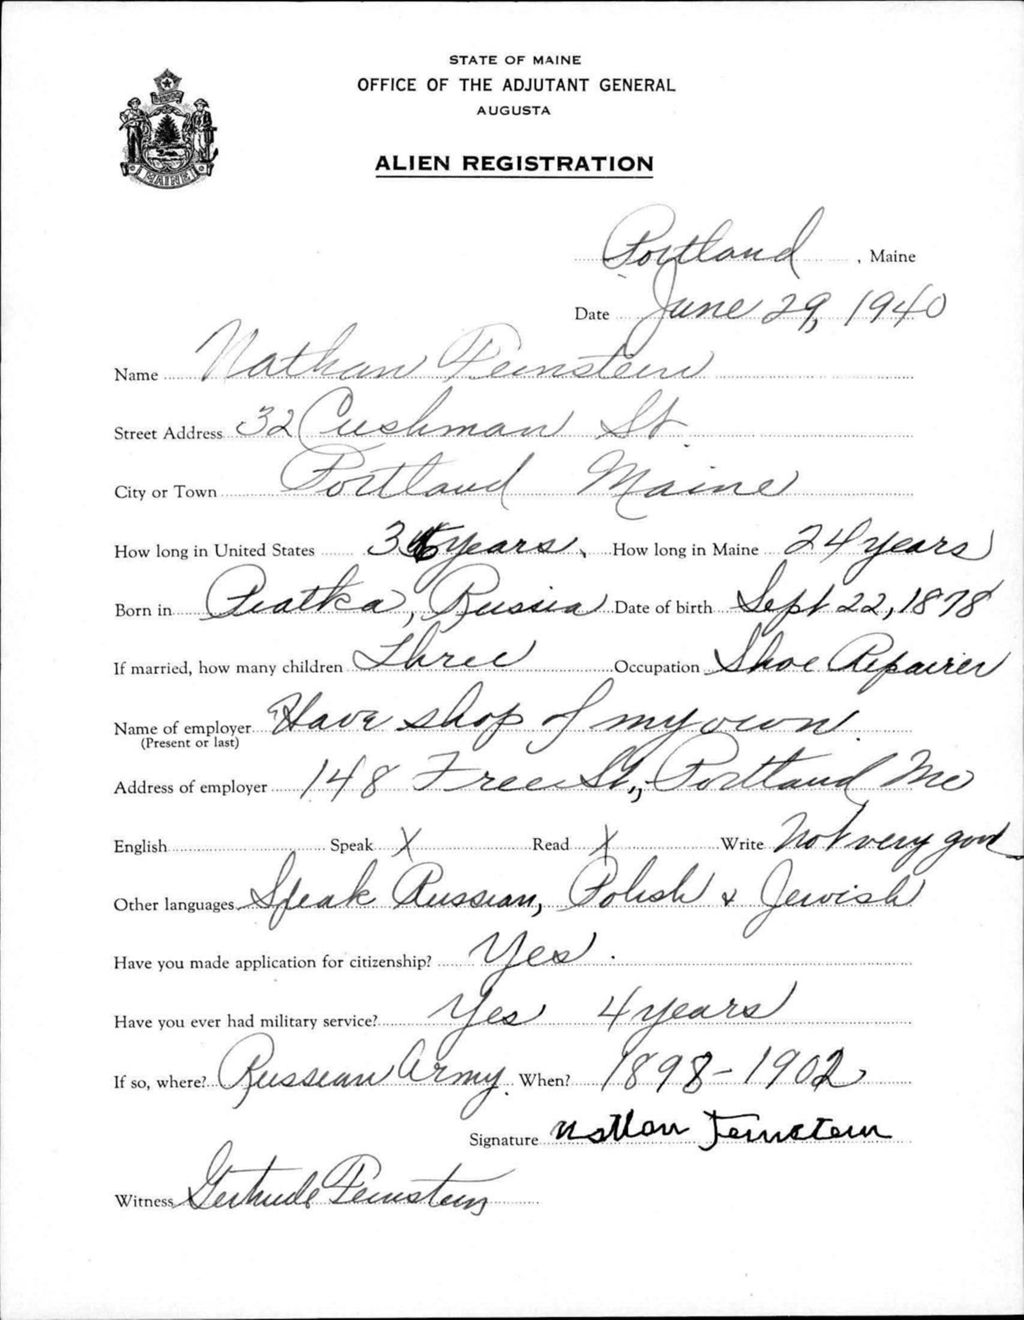 STATE OF MAINE
OFFICE OF THE ADJUTANT GENERAL
AUGUSTA
ALIEN REGISTRATION
MAINE
Portland, Maine
Date June 29, 1940
Name Nathan Feinstein
Street Address 32 Cushman St.
City or Town Portland Maine
How long in United States years, How long in Maine 24 years
Born in Piatka, Russia Date of birth Sept 22, 1878
If married, how many children Three Occupation Shoe Repairer
Name of employer Have shop of my own.
(Present or last)
Address of employer 148 Free St., Portland Me
English Speak X Read X Write Not very good
Other languages Speak Russian, Polish & Jewish
Have you made application for citizenship? Yes.
Have you ever had military service? Yes 4 years
If so, where? Russian Army. When? 1898-1902
Signature Nathan Feinstein
Witness Gertrude Feinstein